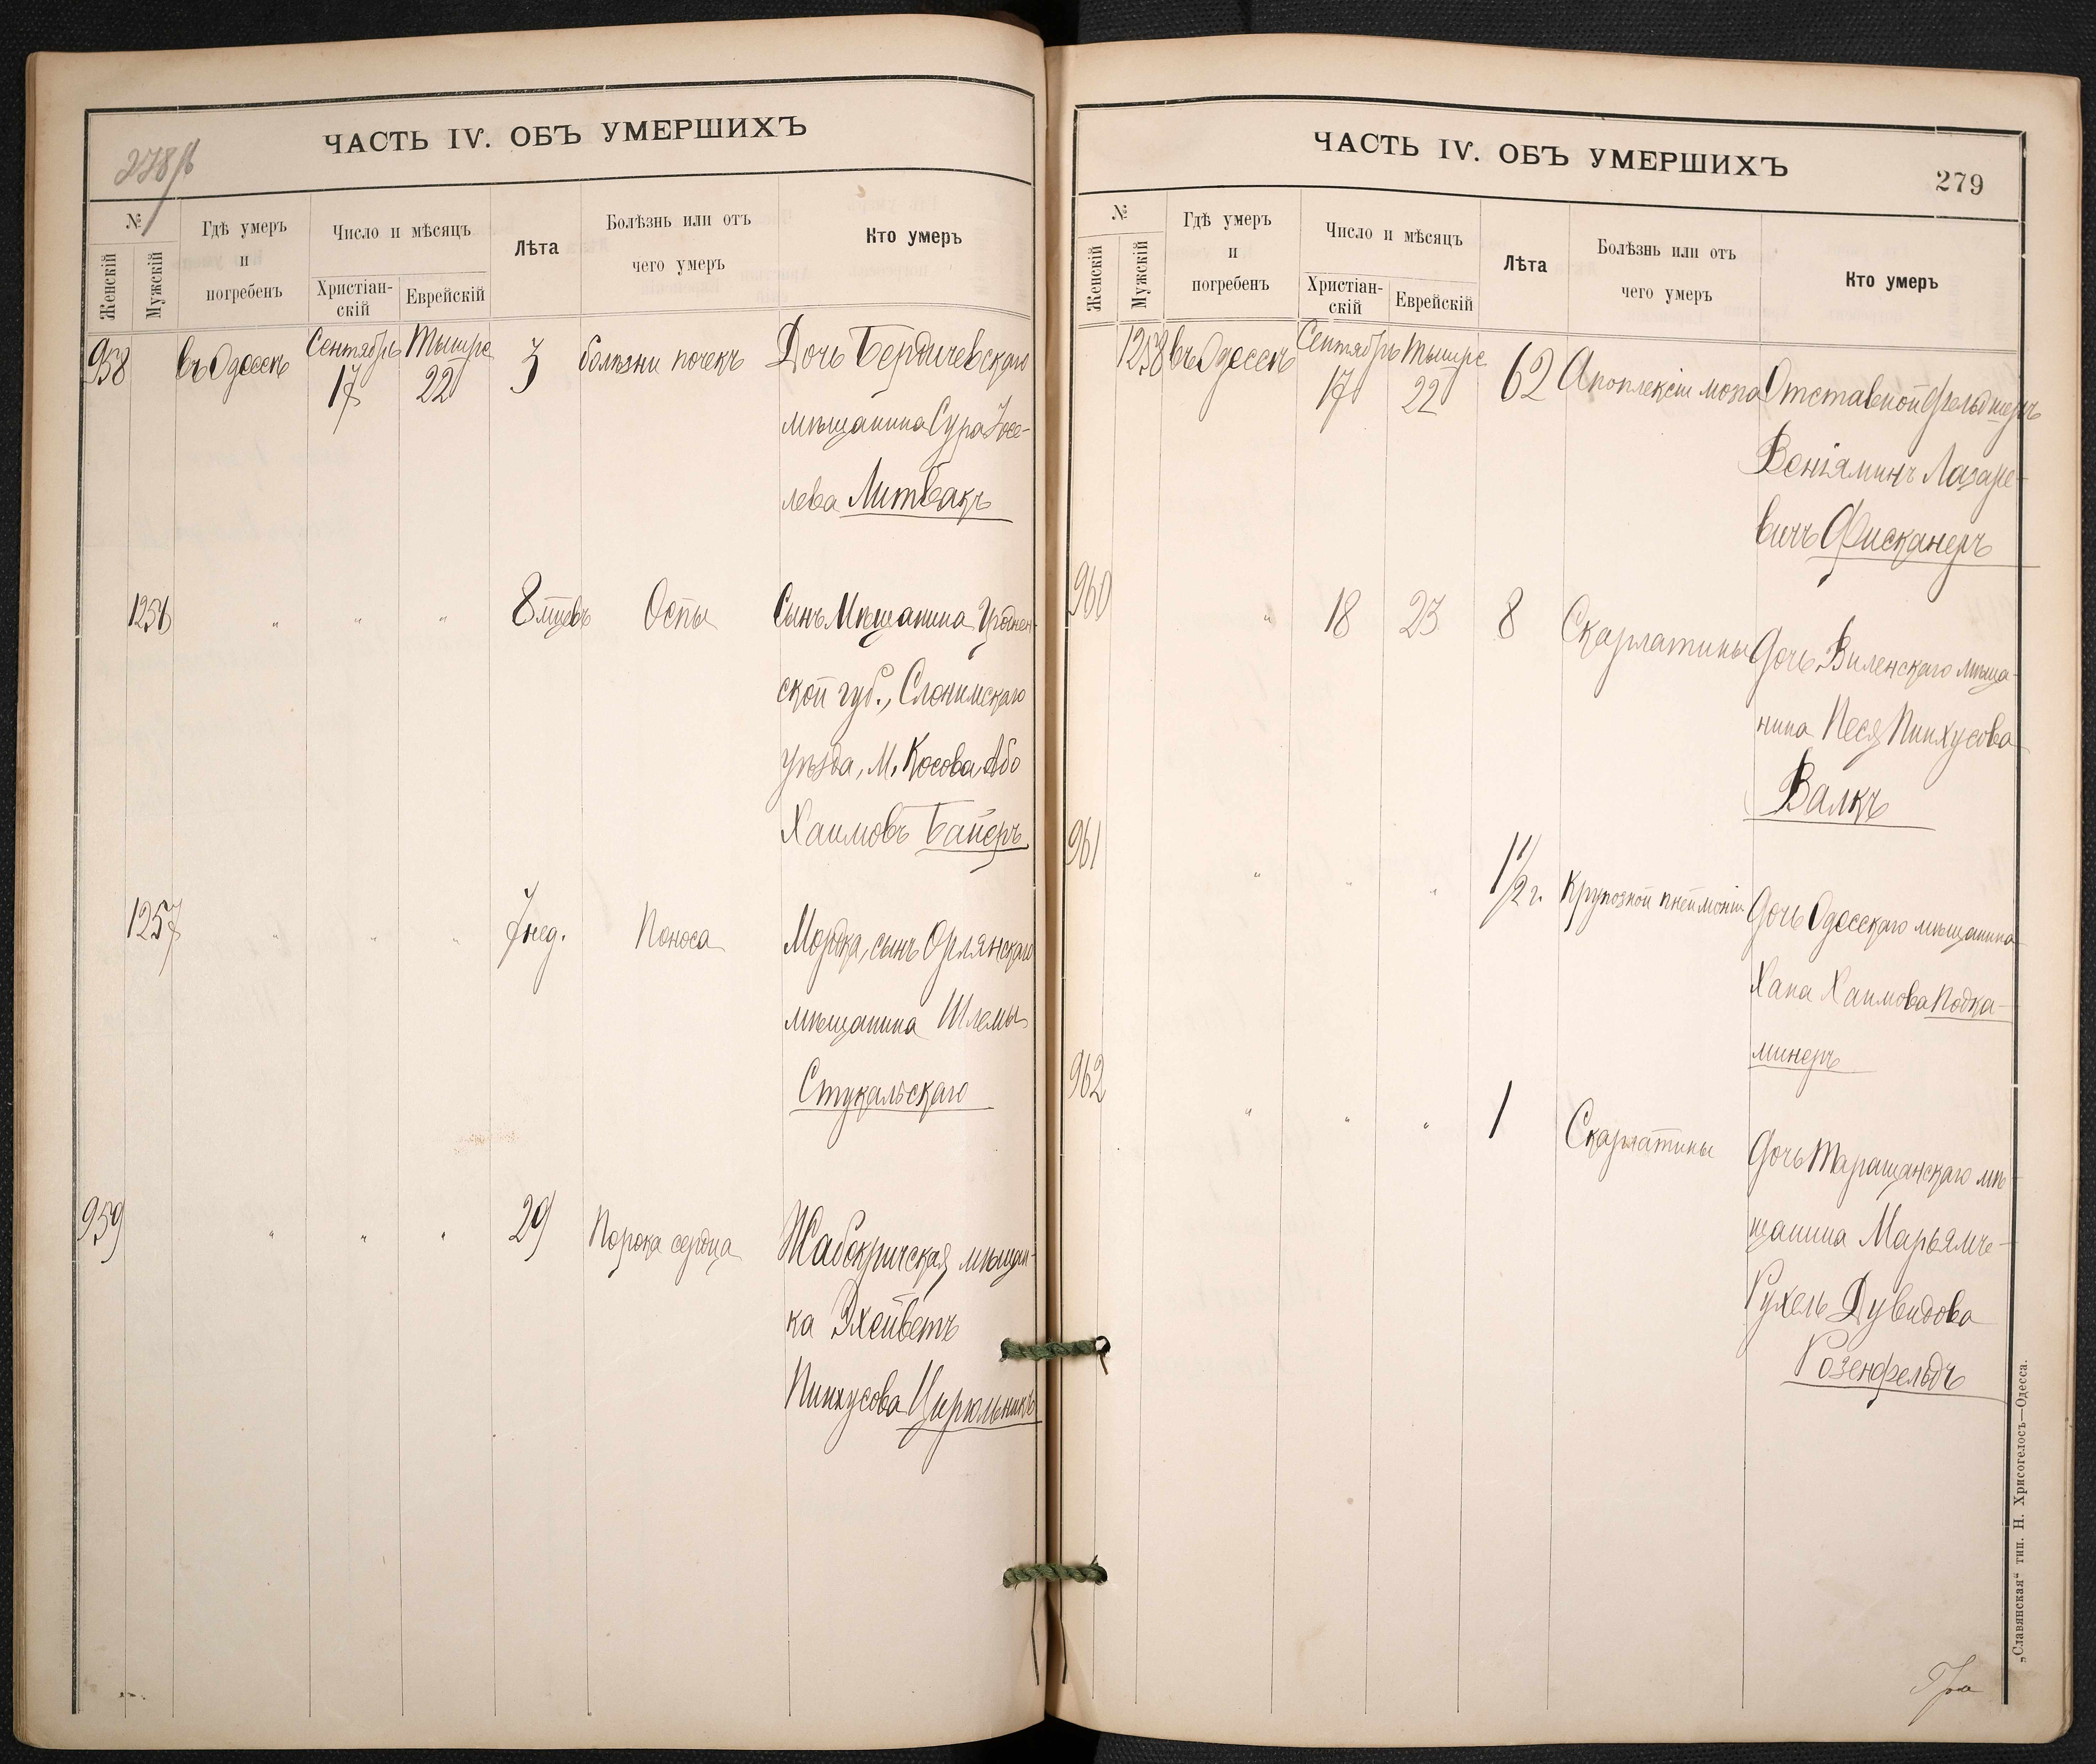 ЧАСТЬ IV. ОБЪ УМЕРШИХЪ
278/б
№
Женскій
Мужскій
Гдѣ умеръ
и
погребенъ
Число и мѣсяцъ
Христіан-
скій
Еврейскій
Лѣта
Болѣзнь или отъ
чего умеръ
Кто умеръ
958 въ Одессѣ Сентябрь 17 Тышре 22 3 болѣзни почекъ Дочь Бердичевскаго
мѣщанина Сура Іосе-
лева Литвакъ
1256 " " " 8 мѣсцвъ Оспы Сынъ Мѣщанина Гроднен-
ской губ., Слонимскаго
уѣзда, М. Косова, Або
Хаимовъ Байеръ
1257 " " " 7 нед. Поноса Мордка, сынъ Орлянскаго
мѣщанина Шлемы
Стукальскаго
959 " " " 29 Порока сердца Жабокричская мѣщан-
ка Эхейветъ
Пинхусова Цирюльникъ
ЧАСТЬ IV. ОБЪ УМЕРШИХЪ
279
№
Женскій
Мужскій
Гдѣ умеръ
и
погребенъ
Число и мѣсяцъ
Христіан-
скій
Еврейскій
Лѣта
Болѣзнь или отъ
чего умеръ
Кто умеръ
1258 въ Одессѣ Сентябрь 17 Тышре 22 62 Апоплексіи мозга Отставной фельдшеръ
Веніяминъ Лазаре-
вичъ Фисканеръ
960 " 18 23 8 Скарлатины Дочь Виленскаго мѣща-
нина Песя Пинхусова
Валкъ
961 " " " 1 1/2 г. Крупозной пнеймоніи Дочь Одесскаго мѣщанина
Хана Хаимова Подка-
минеръ
962 " " " 1 Скарлатины Дочь Таращанскаго мѣ-
щанина Марьямъ-
Рухель Дувидова
Розенфельдъ
„Славянская“ тип. Н. Хрисогелосъ—Одесса.